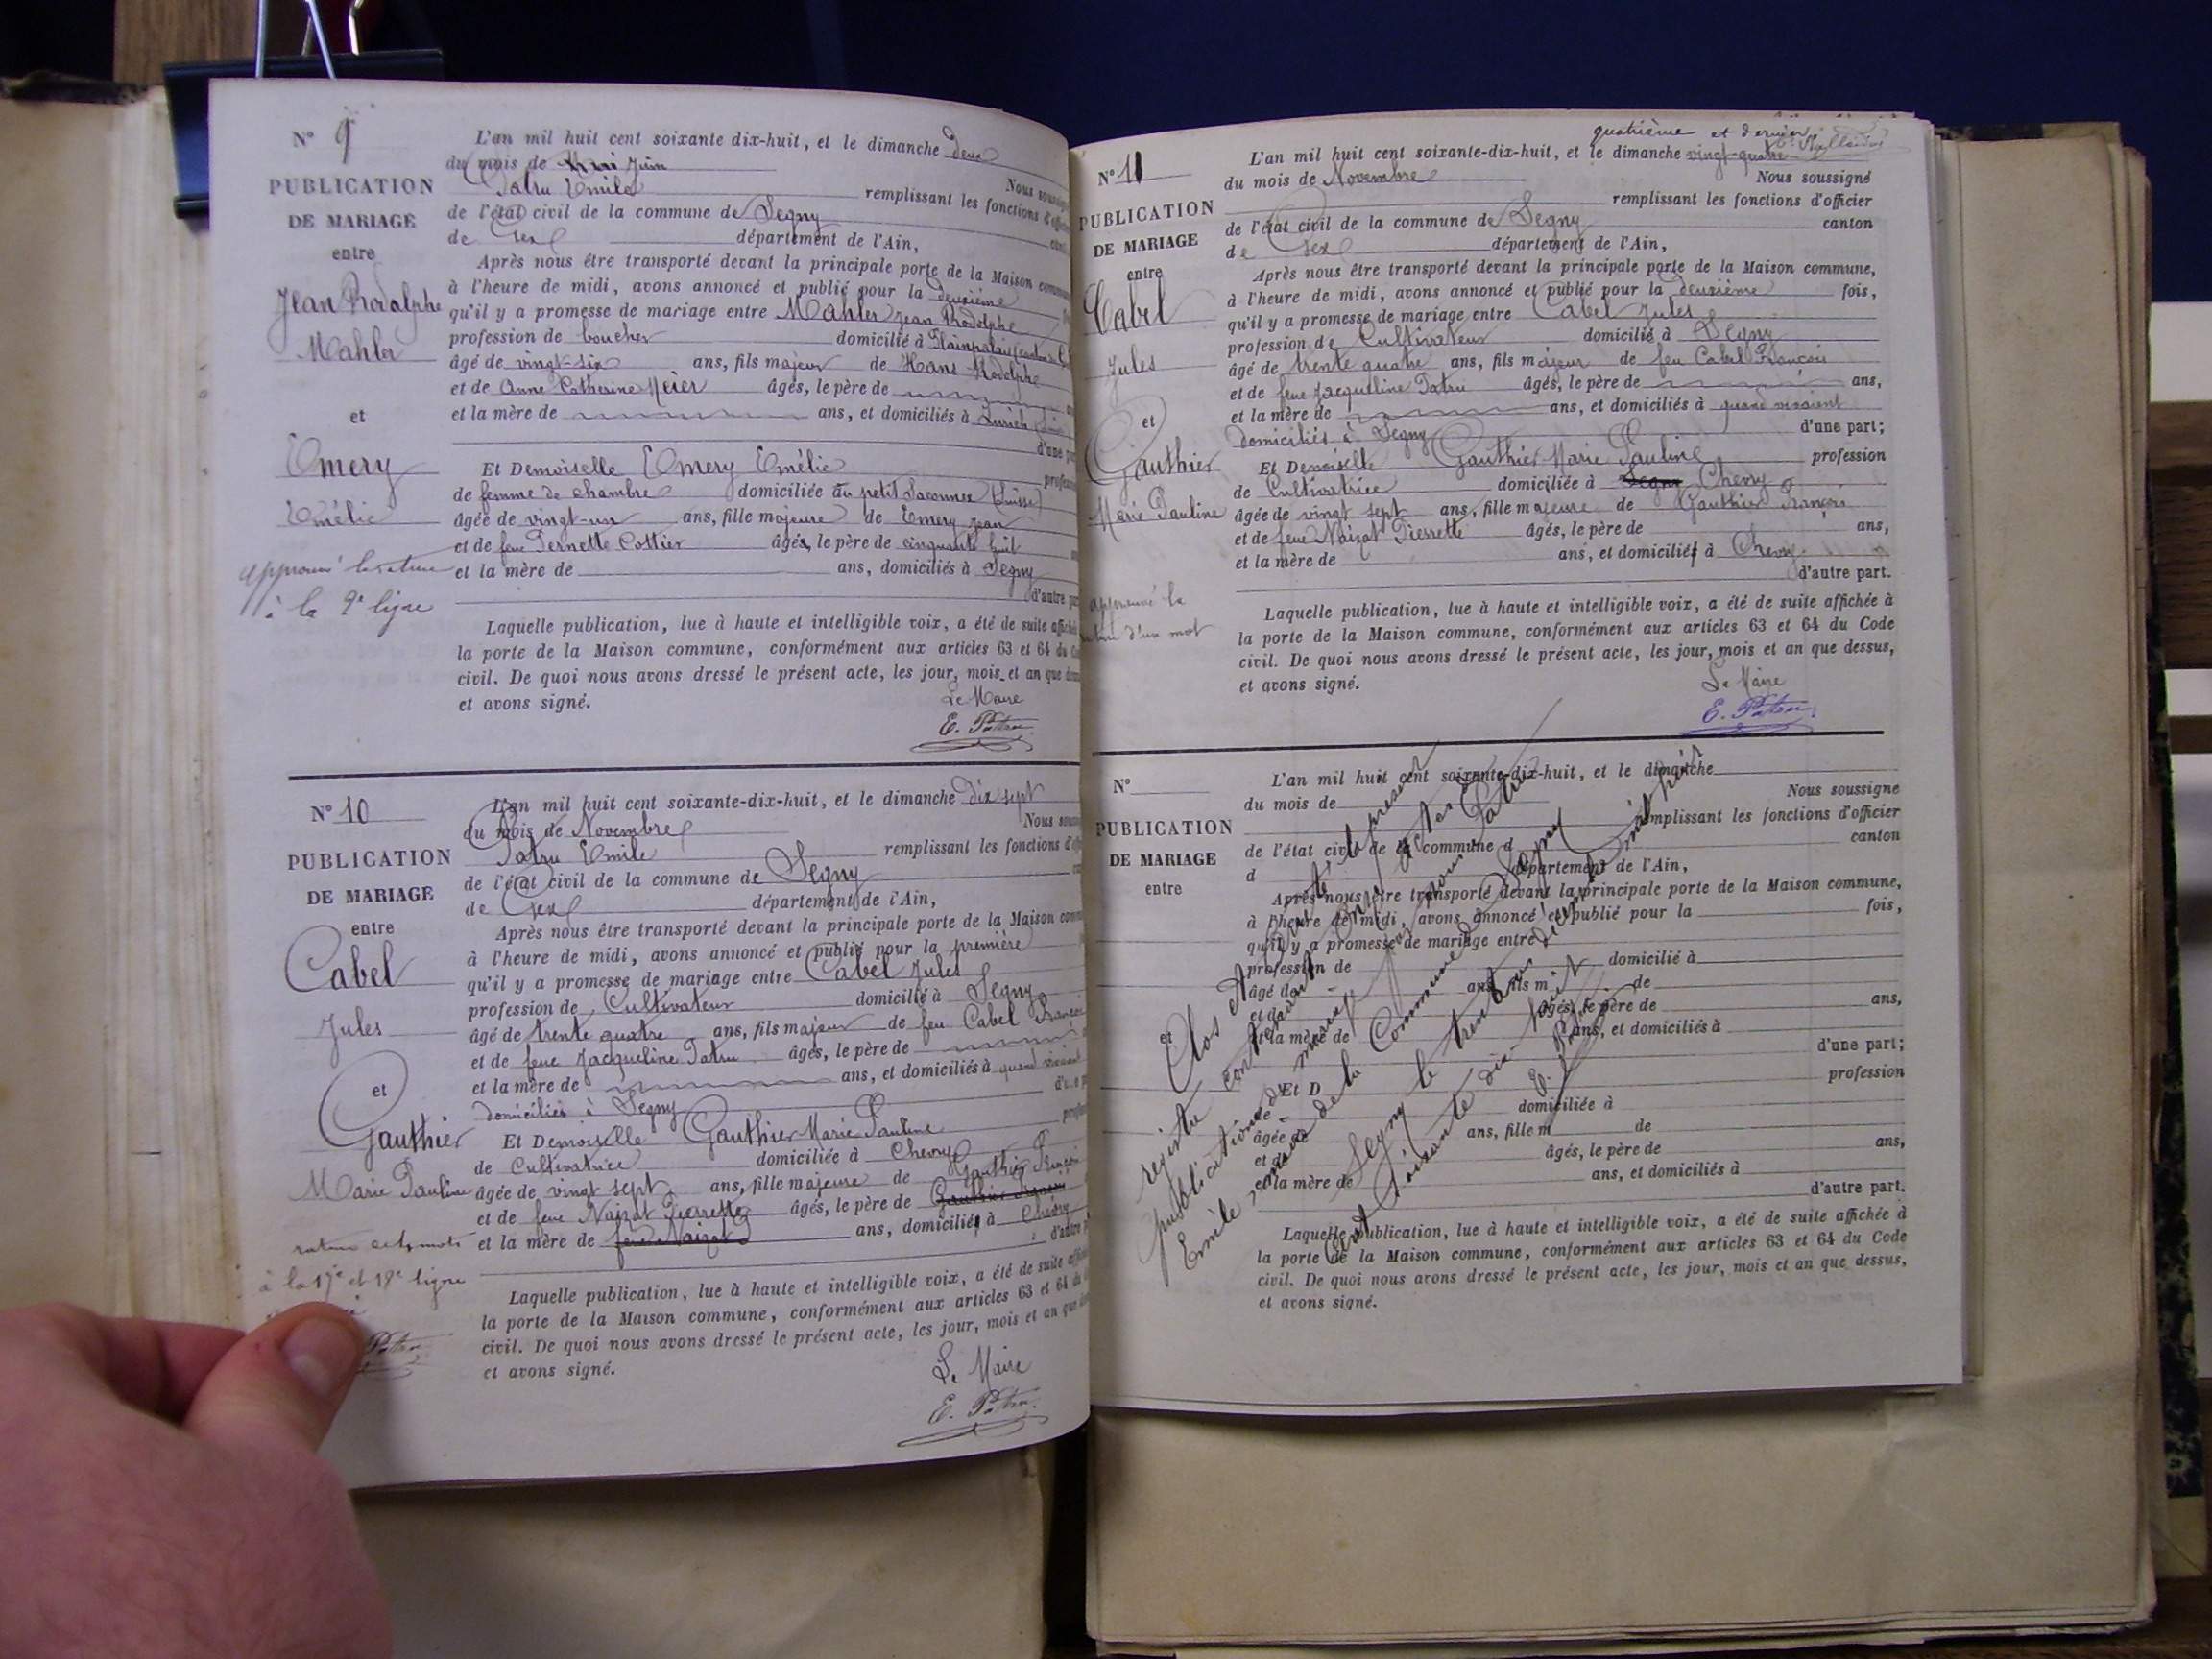 N° 9
PUBLICATION
DE MARIAGE
entre
Jean Rodolphe
Mahler
et
Emery
Emélie
approuvé la rature
à la 2e ligne
L'an mil huit cent soixante dix-huit, et le dimanche deux
du mois de Juin
Nous
Patru Emile remplissant les fonctions
de l'état civil de la commune de Segny
de Gex département de l'Ain,
Après nous être transporté devant la principale porte de la Maison
à l'heure de midi, avons annoncé et publié pour la deuxième
qu'il y a promesse de mariage entre Mahler Jean Rodolphe
profession de boucher domicilié à
âgé de vingt-six ans, fils majeur de Hans Rodolphe
et de Anne Catherine Meier âgés, le père de
et la mère de ans, et domiciliés à Zurich
d'une
Et Demoiselle Emery Emélie
de femme de chambre domiciliée au petit Saconnex (Suisse)
âgée de vingt-un ans, fille majeure de Emery Jean
et de feue Pernette Cottier âgés, le père de cinquante huit
et la mère de ans, domiciliés à Segny
d'autre
Laquelle publication, lue à haute et intelligible voix, a été de suite
la porte de la Maison commune, conformément aux articles 63 et 64 du
civil. De quoi nous avons dressé le présent acte, les jour, mois et an que
et avons signé.
Le Maire
E. Patru
N° 10
PUBLICATION
DE MARIAGE
entre
Cabel
Jules
et
Gauthier
Marie Pauline
mots
à la 17e et 18e ligne
Patru
L'an mil huit cent soixante-dix-huit, et le dimanche dix sept
du mois de Novembre
Nous
Patru Emile remplissant les fonctions
de l'état civil de la commune de Segny
de Gex département de l'Ain,
Après nous être transporté devant la principale porte de la Maison
à l'heure de midi, avons annoncé et publié pour la première
qu'il y a promesse de mariage entre Cabel Jules
profession de Cultivateur domicilié à Segny
âgé de trente quatre ans, fils majeur de feu Cabel François
et de feue Jacqueline Patru âgés, le père de
et la mère de ans, et domiciliés à quand vivaient
domiciliés à Segny
Et Demoiselle Gauthier Marie Pauline
de Cultivatrice domiciliée à Chevry
âgée de vingt sept ans, fille majeure de Gauthier François
et de feue Naizot Pierrette âgés, le père de Gauthier
et la mère de feue Naizot ans, domiciliés à Chevry
d'autre
Laquelle publication, lue à haute et intelligible voix, a été de suite
la porte de la Maison commune, conformément aux articles 63 et 64 du
civil. De quoi nous avons dressé le présent acte, les jour, mois et an que
et avons signé.
Le Maire
E. Patru
quatrième et dernier
N° 11
PUBLICATION
DE MARIAGE
entre
Cabel
Jules
et
Gauthier
Marie Pauline
approuvé la
d'un mot
L'an mil huit cent soixante-dix-huit, et le dimanche vingt-quatre
du mois de Novembre Nous soussigné
remplissant les fonctions d'officier
de l'état civil de la commune de Segny canton
de Gex département de l'Ain,
Après nous être transporté devant la principale porte de la Maison commune,
à l'heure de midi, avons annoncé et publié pour la deuxième fois,
qu'il y a promesse de mariage entre Cabel Jules
profession de Cultivateur domicilié à Segny
âgé de trente quatre ans, fils majeur de feu Cabel François
et de feue Jacqueline Patru âgés, le père de ans,
et la mère de ans, et domiciliés à quand vivaient
domiciliés à Segny d'une part;
Et Demoiselle Gauthier Marie Pauline profession
de Cultivatrice domiciliée à Segny Chevry
âgée de vingt sept ans, fille majeure de Gauthier François
et de feue Naizot Pierrette âgés, le père de ans,
et la mère de ans, et domiciliés à Chevry
d'autre part.
Laquelle publication, lue à haute et intelligible voix, a été de suite affichée à
la porte de la Maison commune, conformément aux articles 63 et 64 du Code
civil. De quoi nous avons dressé le présent acte, les jour, mois et an que dessus,
et avons signé.
Le Maire
E. Patru
N°
PUBLICATION
DE MARIAGE
entre
et
L'an mil huit cent soixante-dix-huit, et le dimanche
du mois de Nous soussigné
remplissant les fonctions d'officier
de l'état civil de la commune d canton
d département de l'Ain,
Après nous être transporté devant la principale porte de la Maison commune,
à l'heure de midi, avons annoncé et publié pour la fois,
qu'il y a promesse de mariage entre
profession de domicilié à
âgé de ans, fils m de
et de âgés, le père de ans,
et la mère de ans, et domiciliés à
d'une part;
Et D profession
de domiciliée à
âgée de ans, fille m de
et de âgés, le père de ans,
et la mère de ans, et domiciliés à
d'autre part.
Laquelle publication, lue à haute et intelligible voix, a été de suite affichée à
la porte de la Maison commune, conformément aux articles 63 et 64 du Code
civil. De quoi nous avons dressé le présent acte, les jour, mois et an que dessus,
et avons signé.
Clos et arrêté le présent
registre contenant onze actes de
publications de mariage par nous Patru
Emile, maire de la Commune de Segny
Segny le trente un décembre mil huit
cent soixante dix-huit
E. Patru